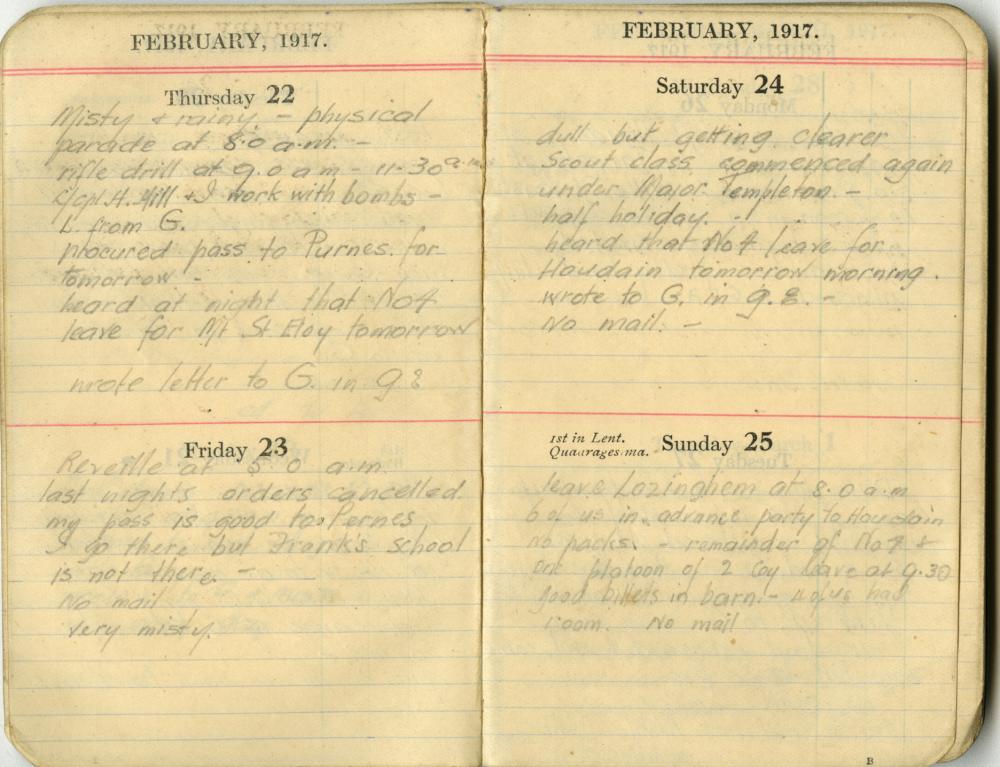 FEBRUARY, 1917.
Thursday 22
Misty & rainy - physical
parade at 8.0 a.m. -
rifle drill at 9.0 a m - 11-30 a.m.
L/cpl. H. Hill & I work with bombs -
L. from G.
procured pass to Purnes. for
tomorrow -
heard at night that No 4
leave for Mt St Eloy tomorrow
wrote letter to G. in g.E
Friday 23
Reveille at 5 0 a m.
last nights orders cancelled.
my pass is good to Pernes
I go there but Frank's school
is not there. -
No mail
very misty.
FEBRUARY, 1917.
Saturday 24
dull but getting clearer
Scout class commenced again
under Major Templeton. -
half holiday. -
heard that No 4 leave for
Houdain tomorrow morning.
wrote to G. in g.E. -
No mail. -
1st in Lent.
Quadragesima.
Sunday 25
leave Lozinghem at 8.0 a.m
6 of us in advance party to Houdain
no packs. - remainder of No 4 &
one platoon of 2 Coy leave at 9.30
good billets in barn. - us had
room. No mail
B